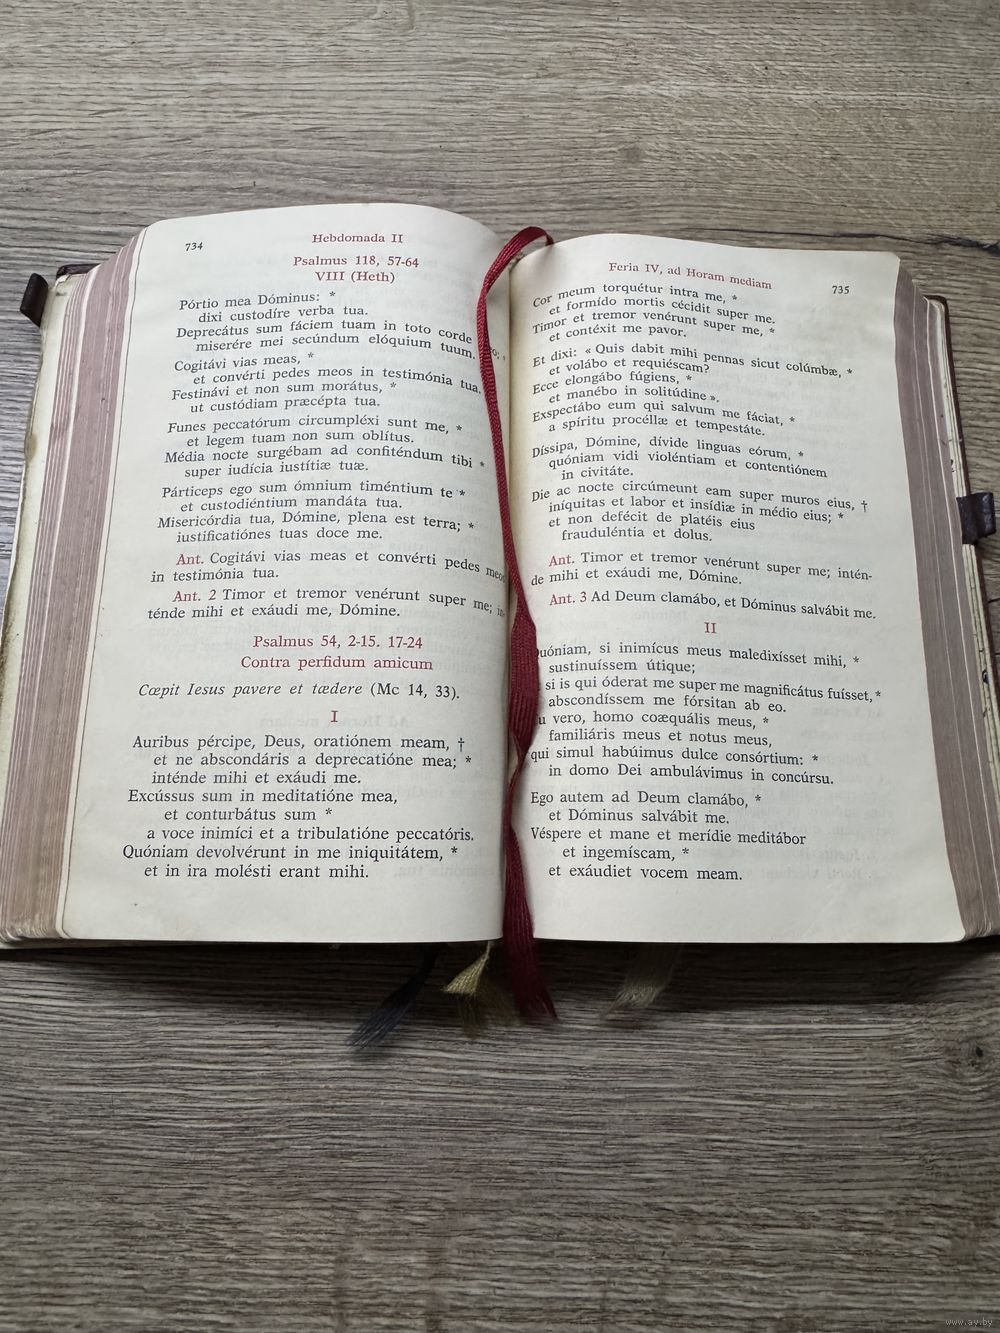 734
Hebdomada II
Psalmus 118, 57-64
VIII (Heth)
Pórtio mea Dóminus: *
dixi custodíre verba tua.
Deprecátus sum fáciem tuam in toto corde
miserére mei secúndum elóquium tuum.
Cogitávi vias meas, *
et convérti pedes meos in testimónia tua.
Festinávi et non sum morátus, *
ut custódiam præcépta tua.
Funes peccatórum circumpléxi sunt me, *
et legem tuam non sum oblítus.
Média nocte surgébam ad confiténdum tibi *
super iudícia iustítiæ tuæ.
Párticeps ego sum ómnium timéntium te *
et custodiéntium mandáta tua.
Misericórdia tua, Dómine, plena est terra; *
iustificatiónes tuas doce me.
Ant. Cogitávi vias meas et convérti pedes meos
in testimónia tua.
Ant. 2 Timor et tremor venérunt super me; in-
ténde mihi et exáudi me, Dómine.
Psalmus 54, 2-15. 17-24
Contra perfidum amicum
Cœpit Iesus pavere et tædere (Mc 14, 33).
I
Auribus pércipe, Deus, oratiónem meam, †
et ne abscondáris a deprecatióne mea; *
inténde mihi et exáudi me.
Excússus sum in meditatióne mea,
et conturbátus sum *
a voce inimíci et a tribulatióne peccatóris.
Quóniam devolvérunt in me iniquitátem, *
et in ira molésti erant mihi.
Feria IV, ad Horam mediam
735
Cor meum torquétur intra me, *
et formído mortis cécidit super me.
Timor et tremor venérunt super me, *
et contéxit me pavor.
Et dixi: « Quis dabit mihi pennas sicut colúmbæ, *
et volábo et requiéscam?
Ecce elongábo fúgiens, *
et manébo in solitúdine ».
Exspectábo eum qui salvum me fáciat, *
a spíritu procéllæ et tempestáte.
Díssipa, Dómine, dívide linguas eórum, *
quóniam vidi violéntiam et contentiónem
in civitáte.
Die ac nocte circúmeunt eam super muros eius, †
iníquitas et labor et insídiæ in médio eius; *
et non defécit de platéis eius
frauduléntia et dolus.
Ant. Timor et tremor venérunt super me; intén-
de mihi et exáudi me, Dómine.
Ant. 3 Ad Deum clamábo, et Dóminus salvábit me.
II
uóniam, si inimícus meus maledixísset mihi, *
sustinuíssem útique;
si is qui óderat me super me magnificátus fuísset, *
abscondíssem me fórsitan ab eo.
u vero, homo coæquális meus, *
familiáris meus et notus meus,
qui simul habúimus dulce consórtium: *
in domo Dei ambulávimus in concúrsu.
Ego autem ad Deum clamábo, *
et Dóminus salvábit me.
Véspere et mane et merídie meditábor
et ingemíscam, *
et exáudiet vocem meam.
www.ay.by